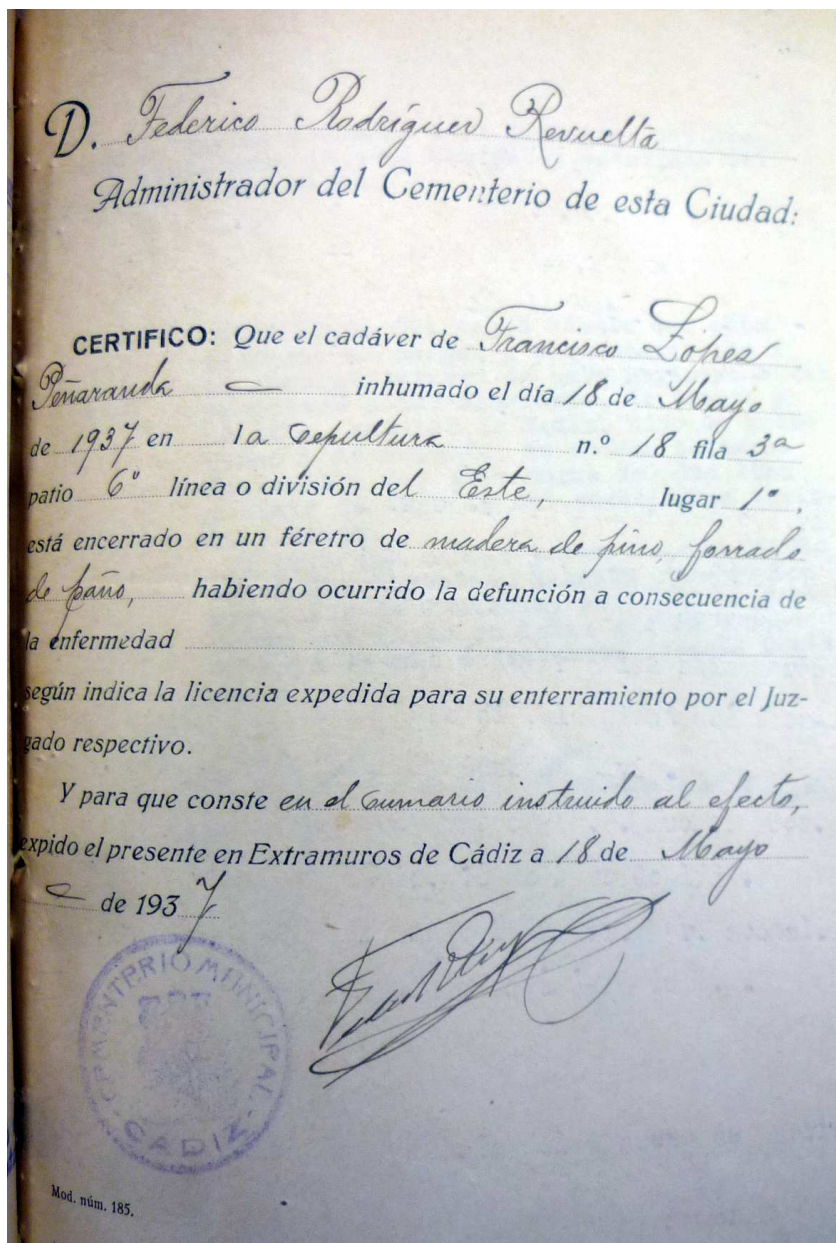 D. Federico Rodríguez Revuelta
Administrador del Cementerio de esta Ciudad:
CERTIFICO: Que el cadáver de Francisco López
Peñaranda inhumado el día 18 de Mayo
de 1937 en la sepultura n.º 18 fila 3ª
patio 6º línea o división del Este, lugar 1º,
está encerrado en un féretro de madera de pino, forrado
de paño, habiendo ocurrido la defunción a consecuencia de
la enfermedad
según indica la licencia expedida para su enterramiento por el Juz-
gado respectivo.
Y para que conste en el sumario instruido al efecto,
expido el presente en Extramuros de Cádiz a 18 de Mayo
de 1937
CEMENTERIO MUNICIPAL
CADIZ
Mod. núm. 185.